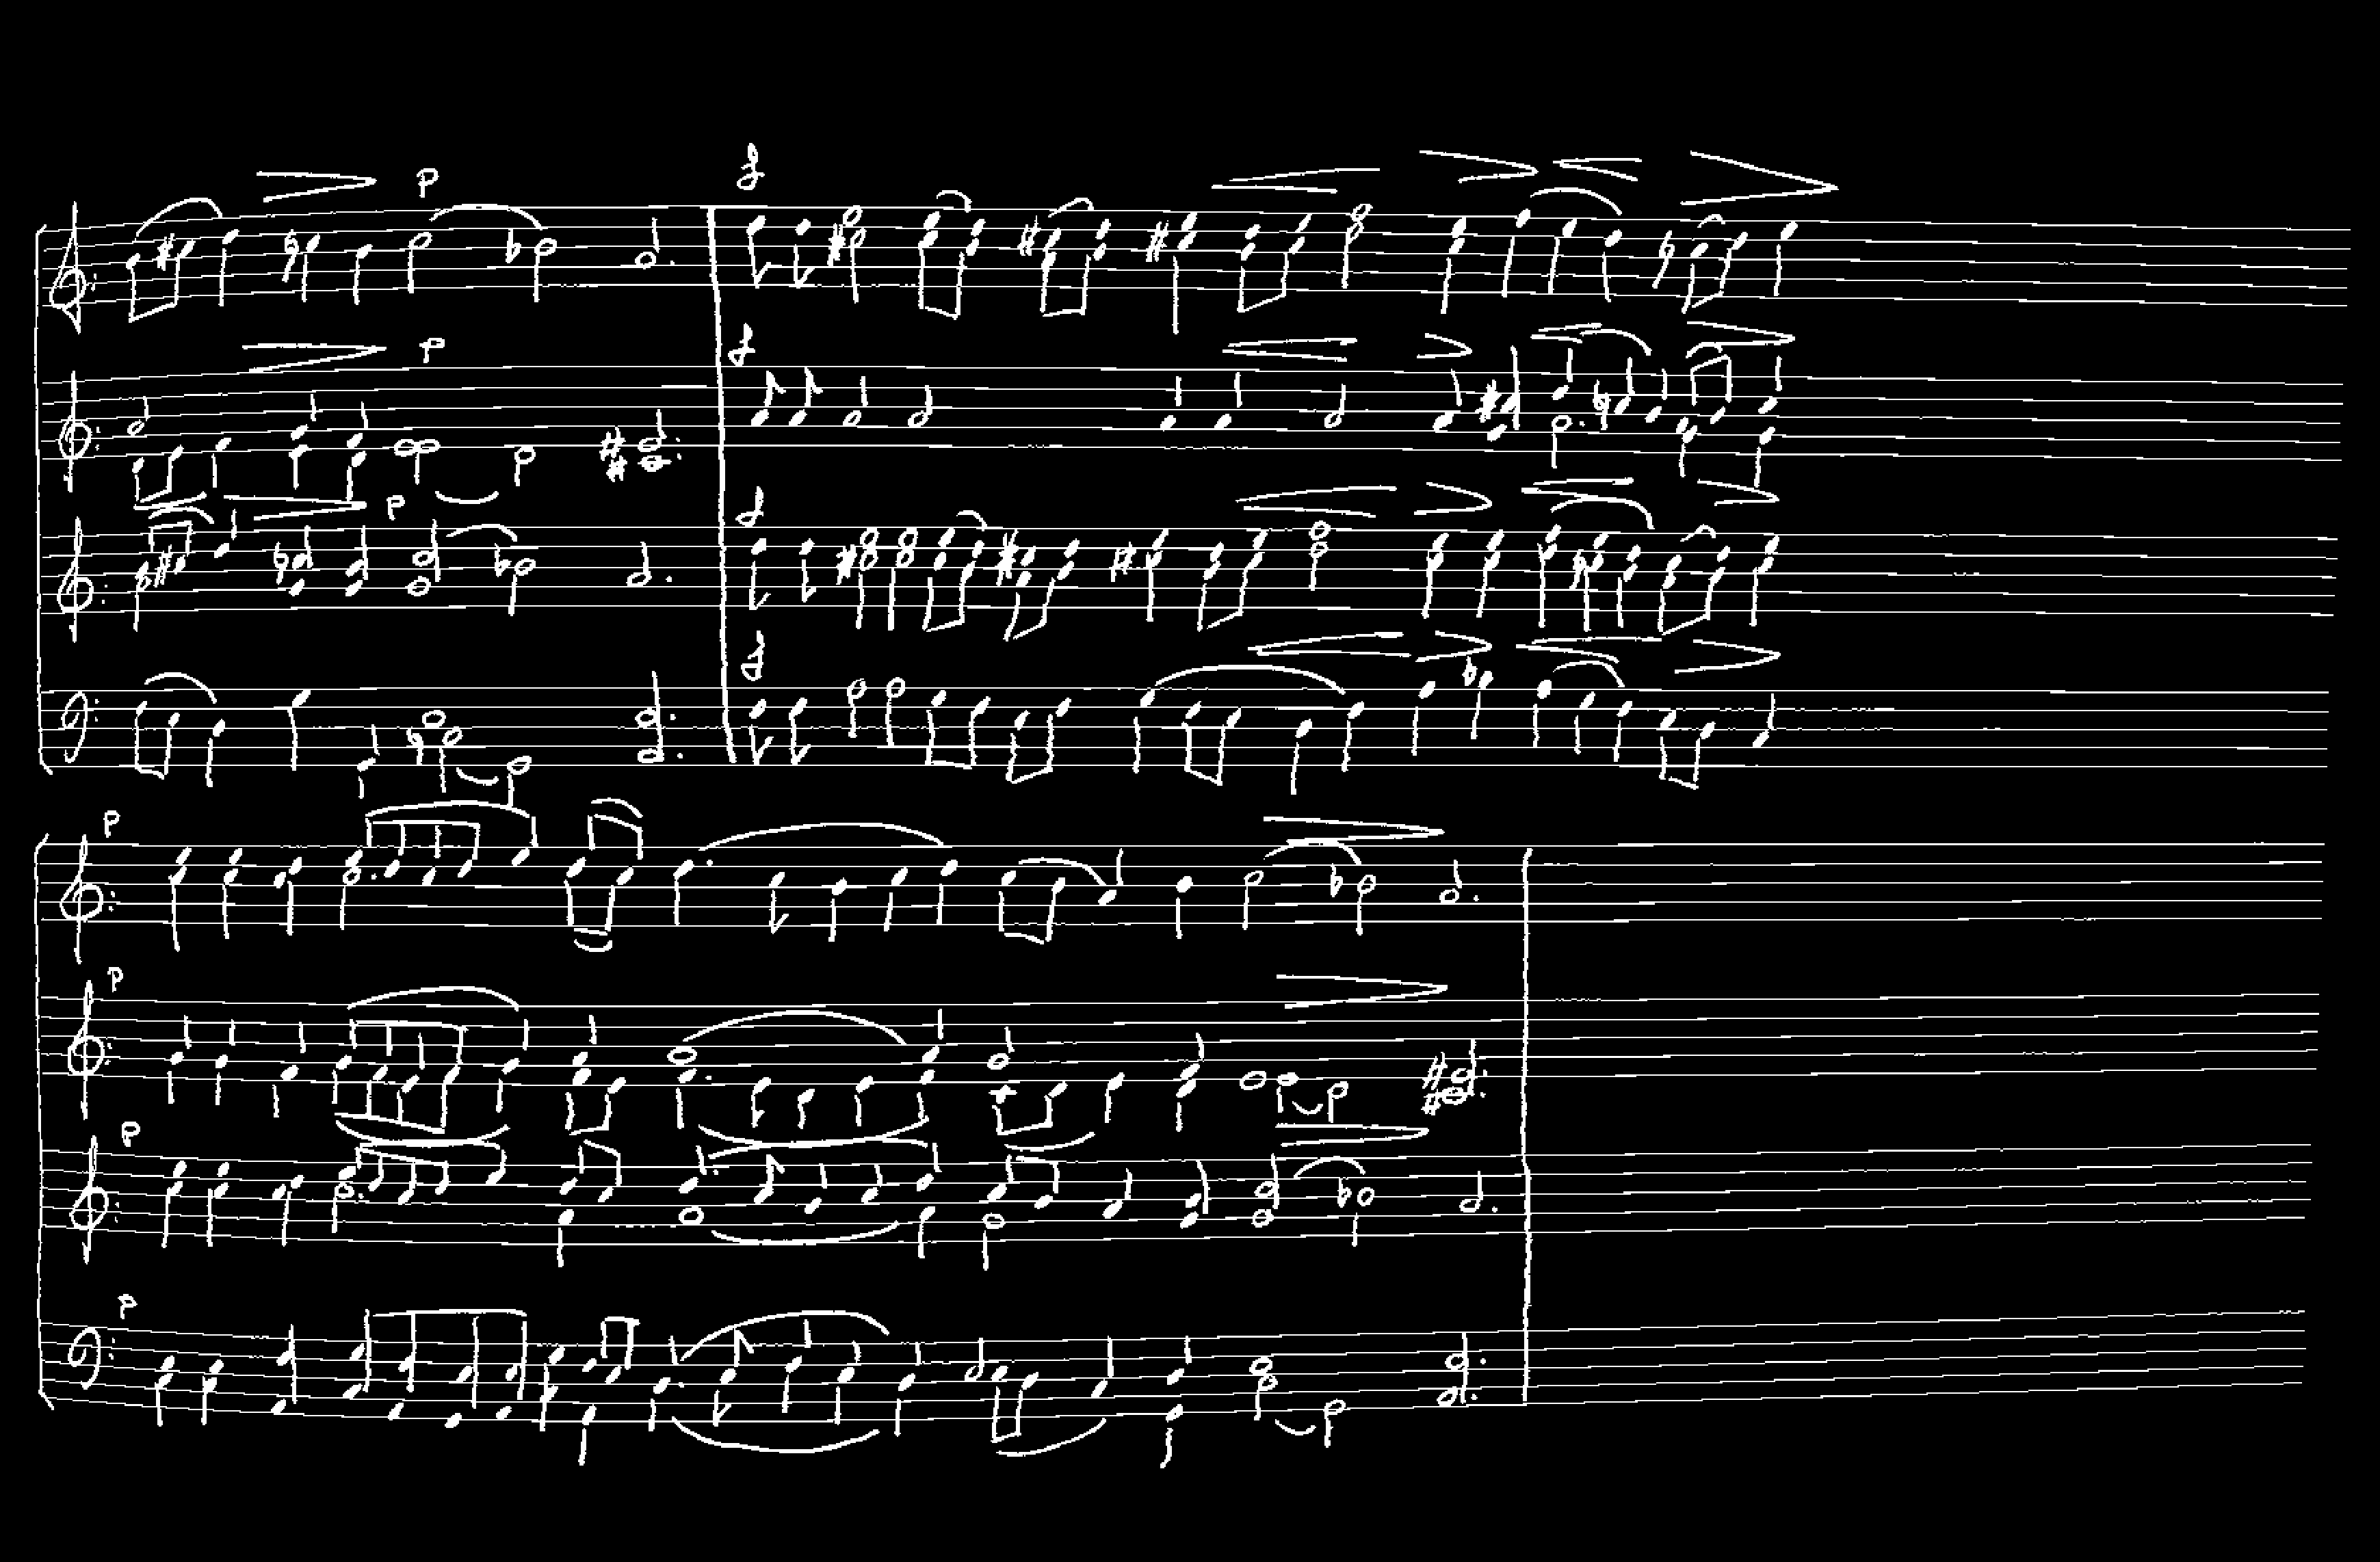 p
f
p
f
p
f
f
p
p
p
p